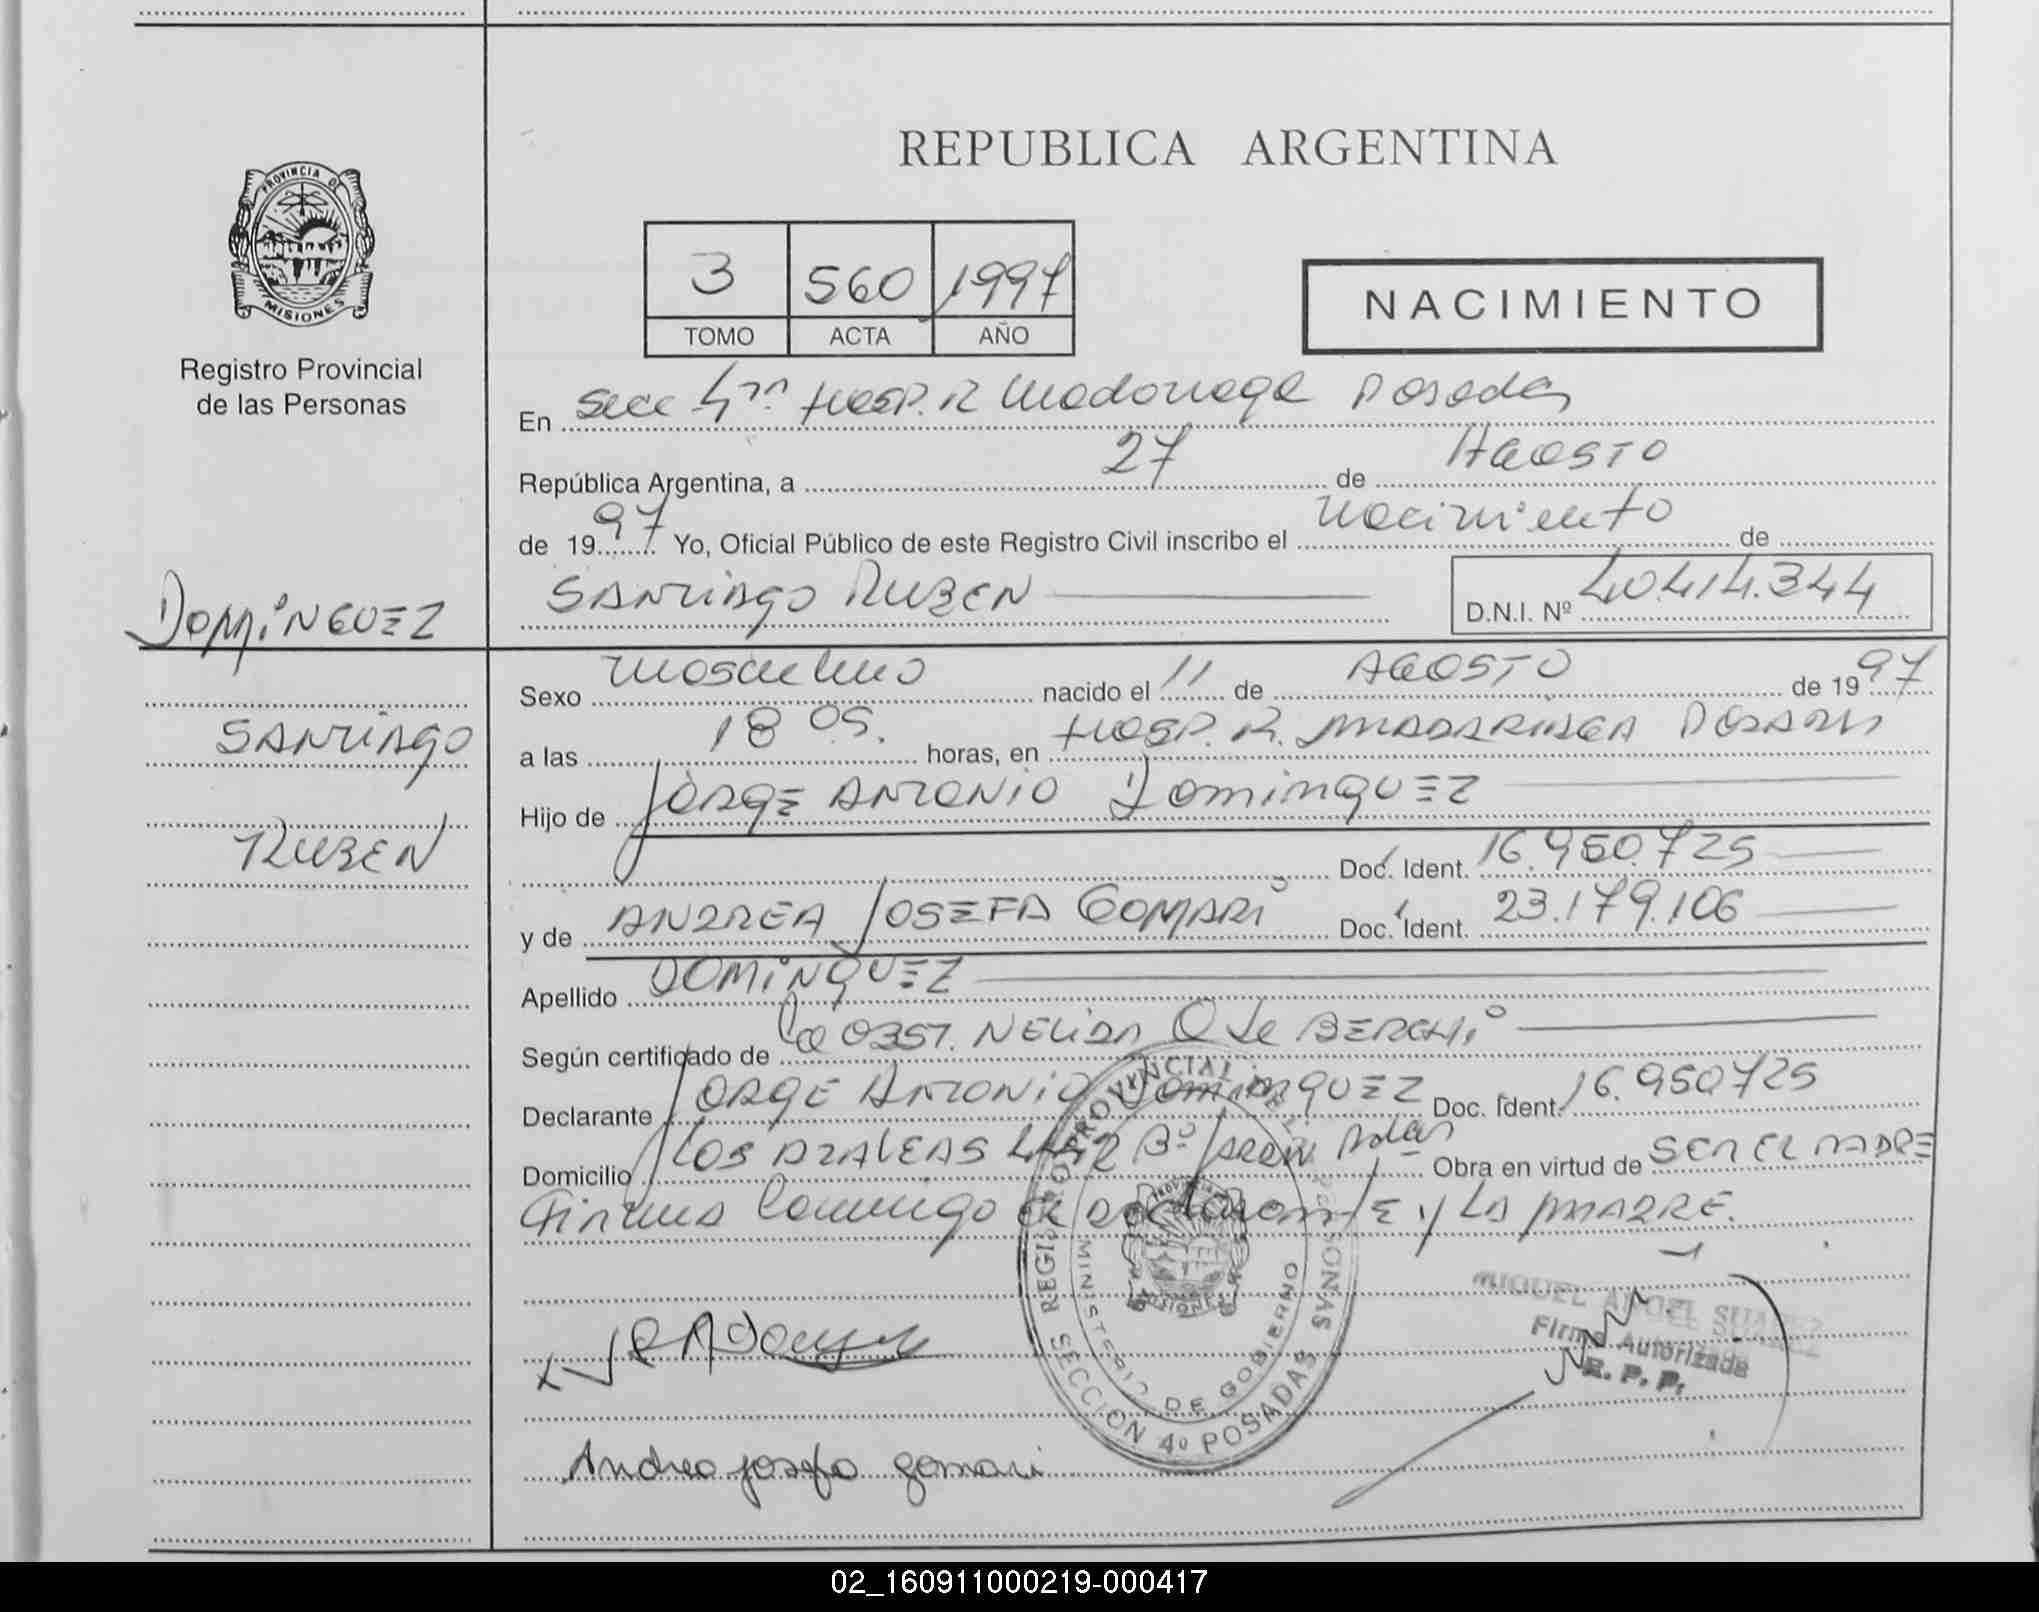 REPUBLICA ARGENTINA
PROVINCIA DE
MISIONES
Registro Provincial
de las Personas
3 560 1997
TOMO ACTA AÑO
NACIMIENTO
En Secc 4ta Hosp. R Madariaga Posadas
República Argentina, a 27 de AGOSTO
de 1997 Yo, Oficial Público de este Registro Civil inscribo el Nacimiento de
SANTIAGO RUBEN D.N.I. Nº 40.414.344
DOMINGUEZ
SANTIAGO
RUBEN
Sexo Masculino nacido el 11 de AGOSTO de 1997
a las 18 05. horas, en HOSP. R. MADARIAGA POSADAS
Hijo de JORGE ANTONIO DOMINGUEZ
Doc. Ident. 16.950.725
y de ANDREA JOSEFA GOMARI Doc. Ident. 23.179.106
Apellido DOMINGUEZ
Según certificado de La OBST. NELIDA O de BERGHI
Declarante JORGE ANTONIO DOMINGUEZ Doc. Ident. 16.950725
Domicilio LOS AZALEAS Bº Pdas Obra en virtud de SER EL PADRE
Firma Conmigo el DECLARANTE y LA MADRE.
REGISTRO PROVINCIAL DE LAS PERSONAS
MINISTERIO DE GOBIERNO
SECCION 4º POSADAS
MIGUEL ANGEL SUAREZ
Firma Autorizada
R. P. P.
Andrea josefa gomari
02_160911000219-000417